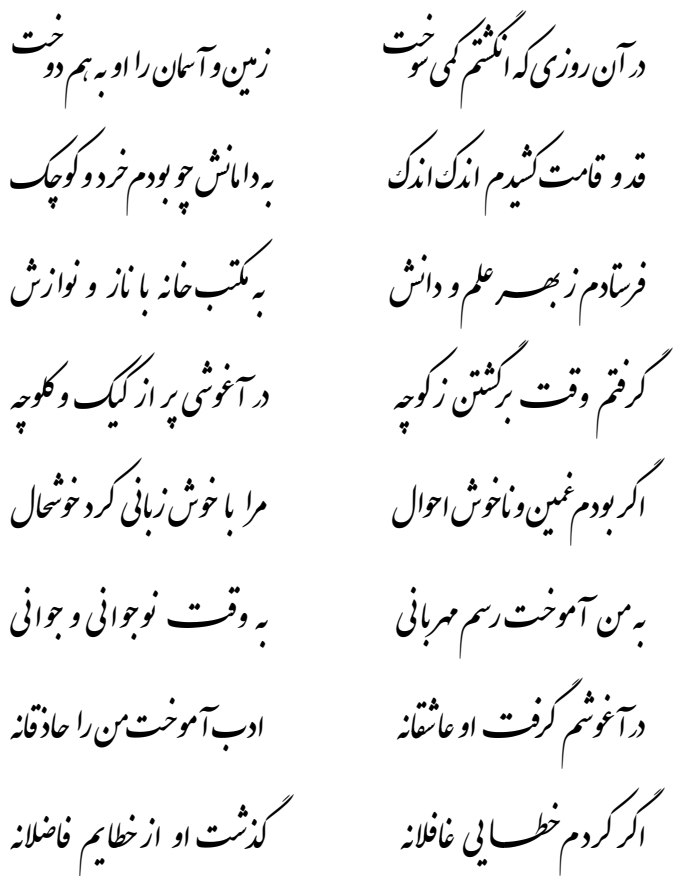 در آن روزی که انگشتم کمی سوخت    زمین و آسمان را او به هم دوخت
قد و قامت کشیدم اندک اندک    به دامانش چو بودم خرد و کوچک
فرستادم ز بهر علم و دانش    به مکتب خانه با ناز و نوازش
گرفتم وقت برگشتن ز کوچه    در آغوشی پر از کیک و کلوچه
اگر بودم غمین و ناخوش احوال    مرا با خوش زبانی کرد خوشحال
به من آموخت رسم مهربانی    به وقت نوجوانی و جوانی
در آغوشم گرفت او عاشقانه    ادب آموخت من را حاذقانه
اگر کردم خطایی غافلانه    گذشت او از خطایم فاضلانه